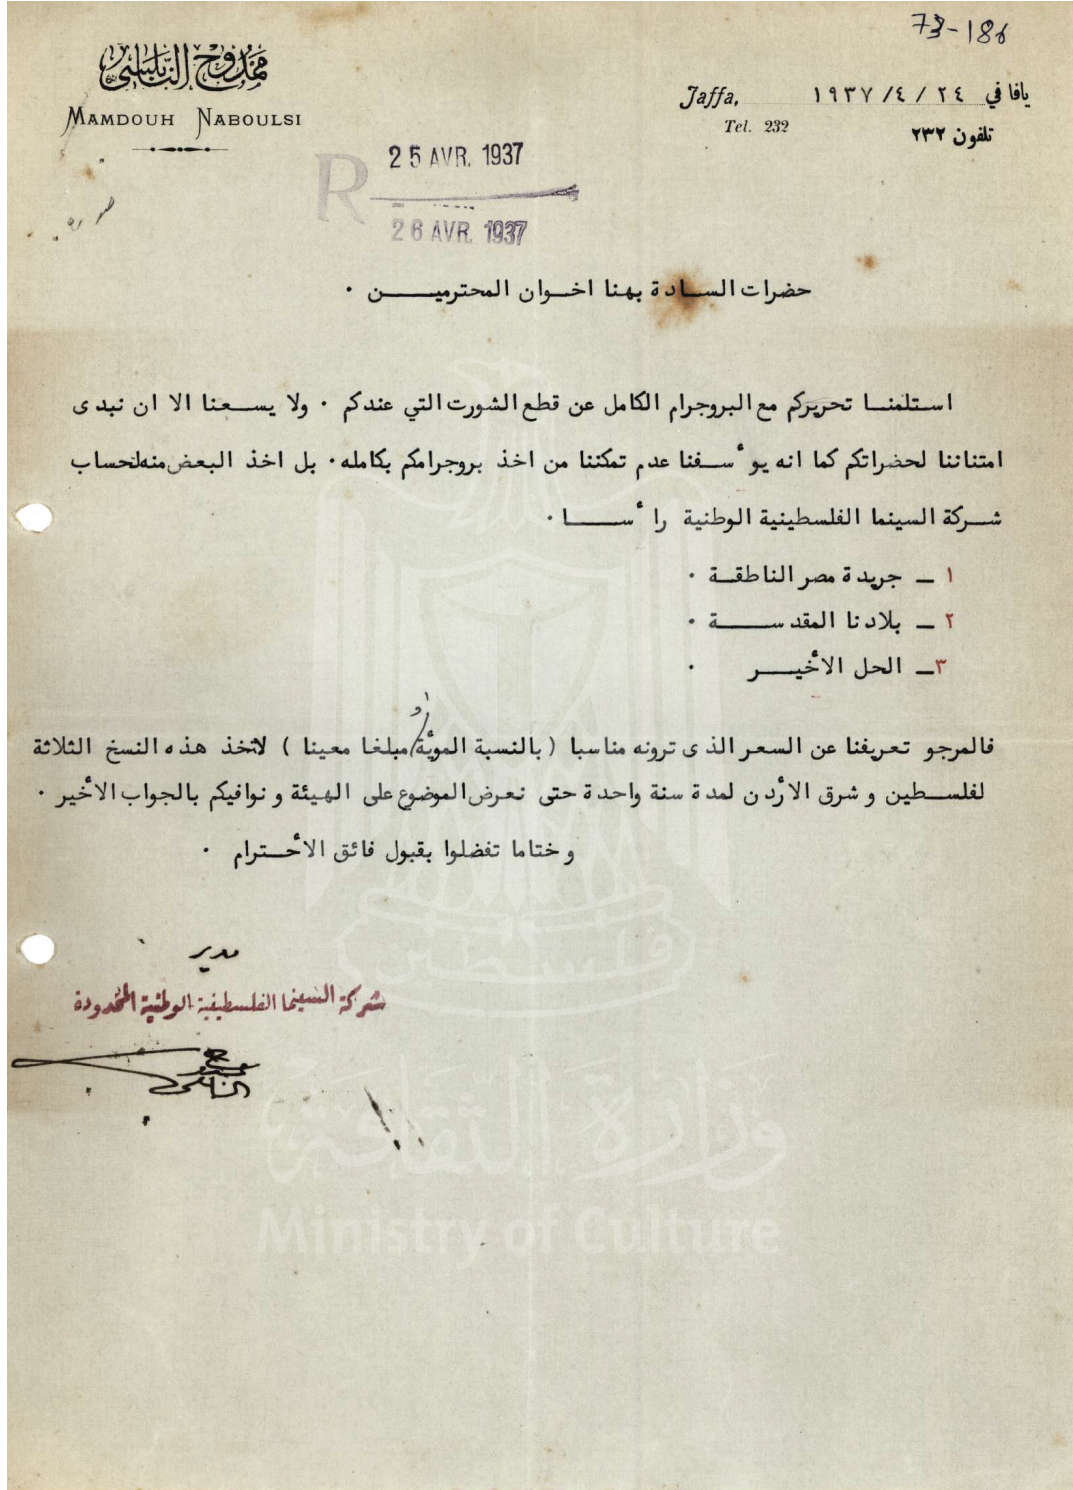 73-186
ممدوح النابلسي
MAMDOUH NABOULSI
Jaffa, يافا في ٢٤ / ٤/ ١٩٣٧
Tel. 232 تلفون ٢٣٢
R
25 AVR. 1937
26 AVR. 1937
صورة
حضرات السادة بهنا اخوان المحترمين ٠
استلمنا تحريركم مع البروجرام الكامل عن قطع الشورت التي عندكم ٠ ولا يسعنا الا ان نبدى
امتناننا لحضراتكم كما انه يوٴسفنا عدم تمكننا من اخذ بروجرامكم بكامله٠ بل اخذ البعض منه لحساب
شركة السينما الفلسطينية الوطنية رأسا ٠
١ – جريدة مصر الناطقة ٠
٢ – بلادنا المقدسة ٠
٣ – الحل الأخير ٠
فالمرجو تعريفنا عن السعر الذى ترونه مناسبا ( بالنسبة المويّة او مبلغا معينا ) لاتخذ هذه النسخ الثلاثة
لفلسطين و شرق الأردن لمدة سنة واحدة حتى نعرض الموضوع على الهيئة و نوافيكم بالجواب الأخير ٠
و ختاما تفضلوا بقبول فائق الأحترام ٠
مدير
شركة السينما الفلسطينية الوطنية المحدودة
ممدوح النابلسي
فلسطين
وزارة الثقافة
Ministry of Culture